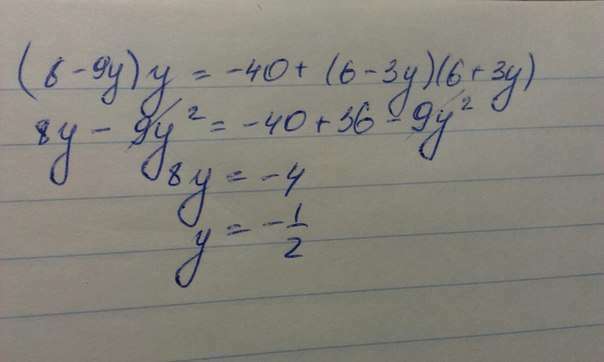 (8-9y)y = -40+(6-3y)(6+3y)
8y-9y²=-40+36-9y²
8y=-4
y=-1/2